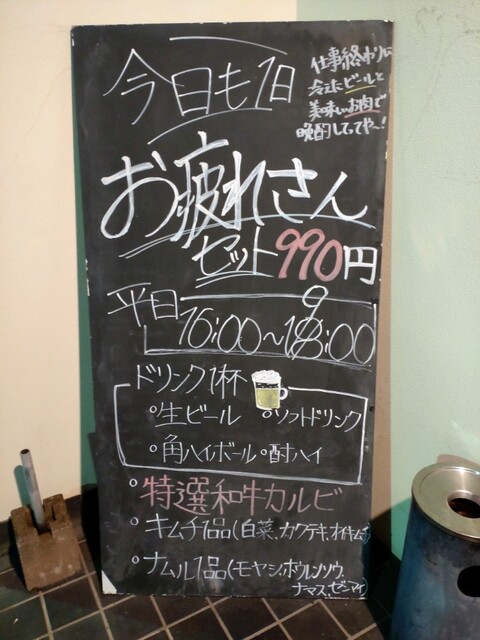 今日も1日
仕事終わりに
冷えたビールと
美味いお肉で
晩酌してってや〜!
お疲れさん
セット990円
平日
16:00〜19:00
ドリンク1杯
°生ビール °ソフトドリンク
°角ハイボール °酎ハイ
°特選和牛カルビ
°キムチ1品(白菜、カクテキ、オイキムチ)
°ナムル1品(モヤシ、ホウレンソウ、
ナマス、ゼンマイ)